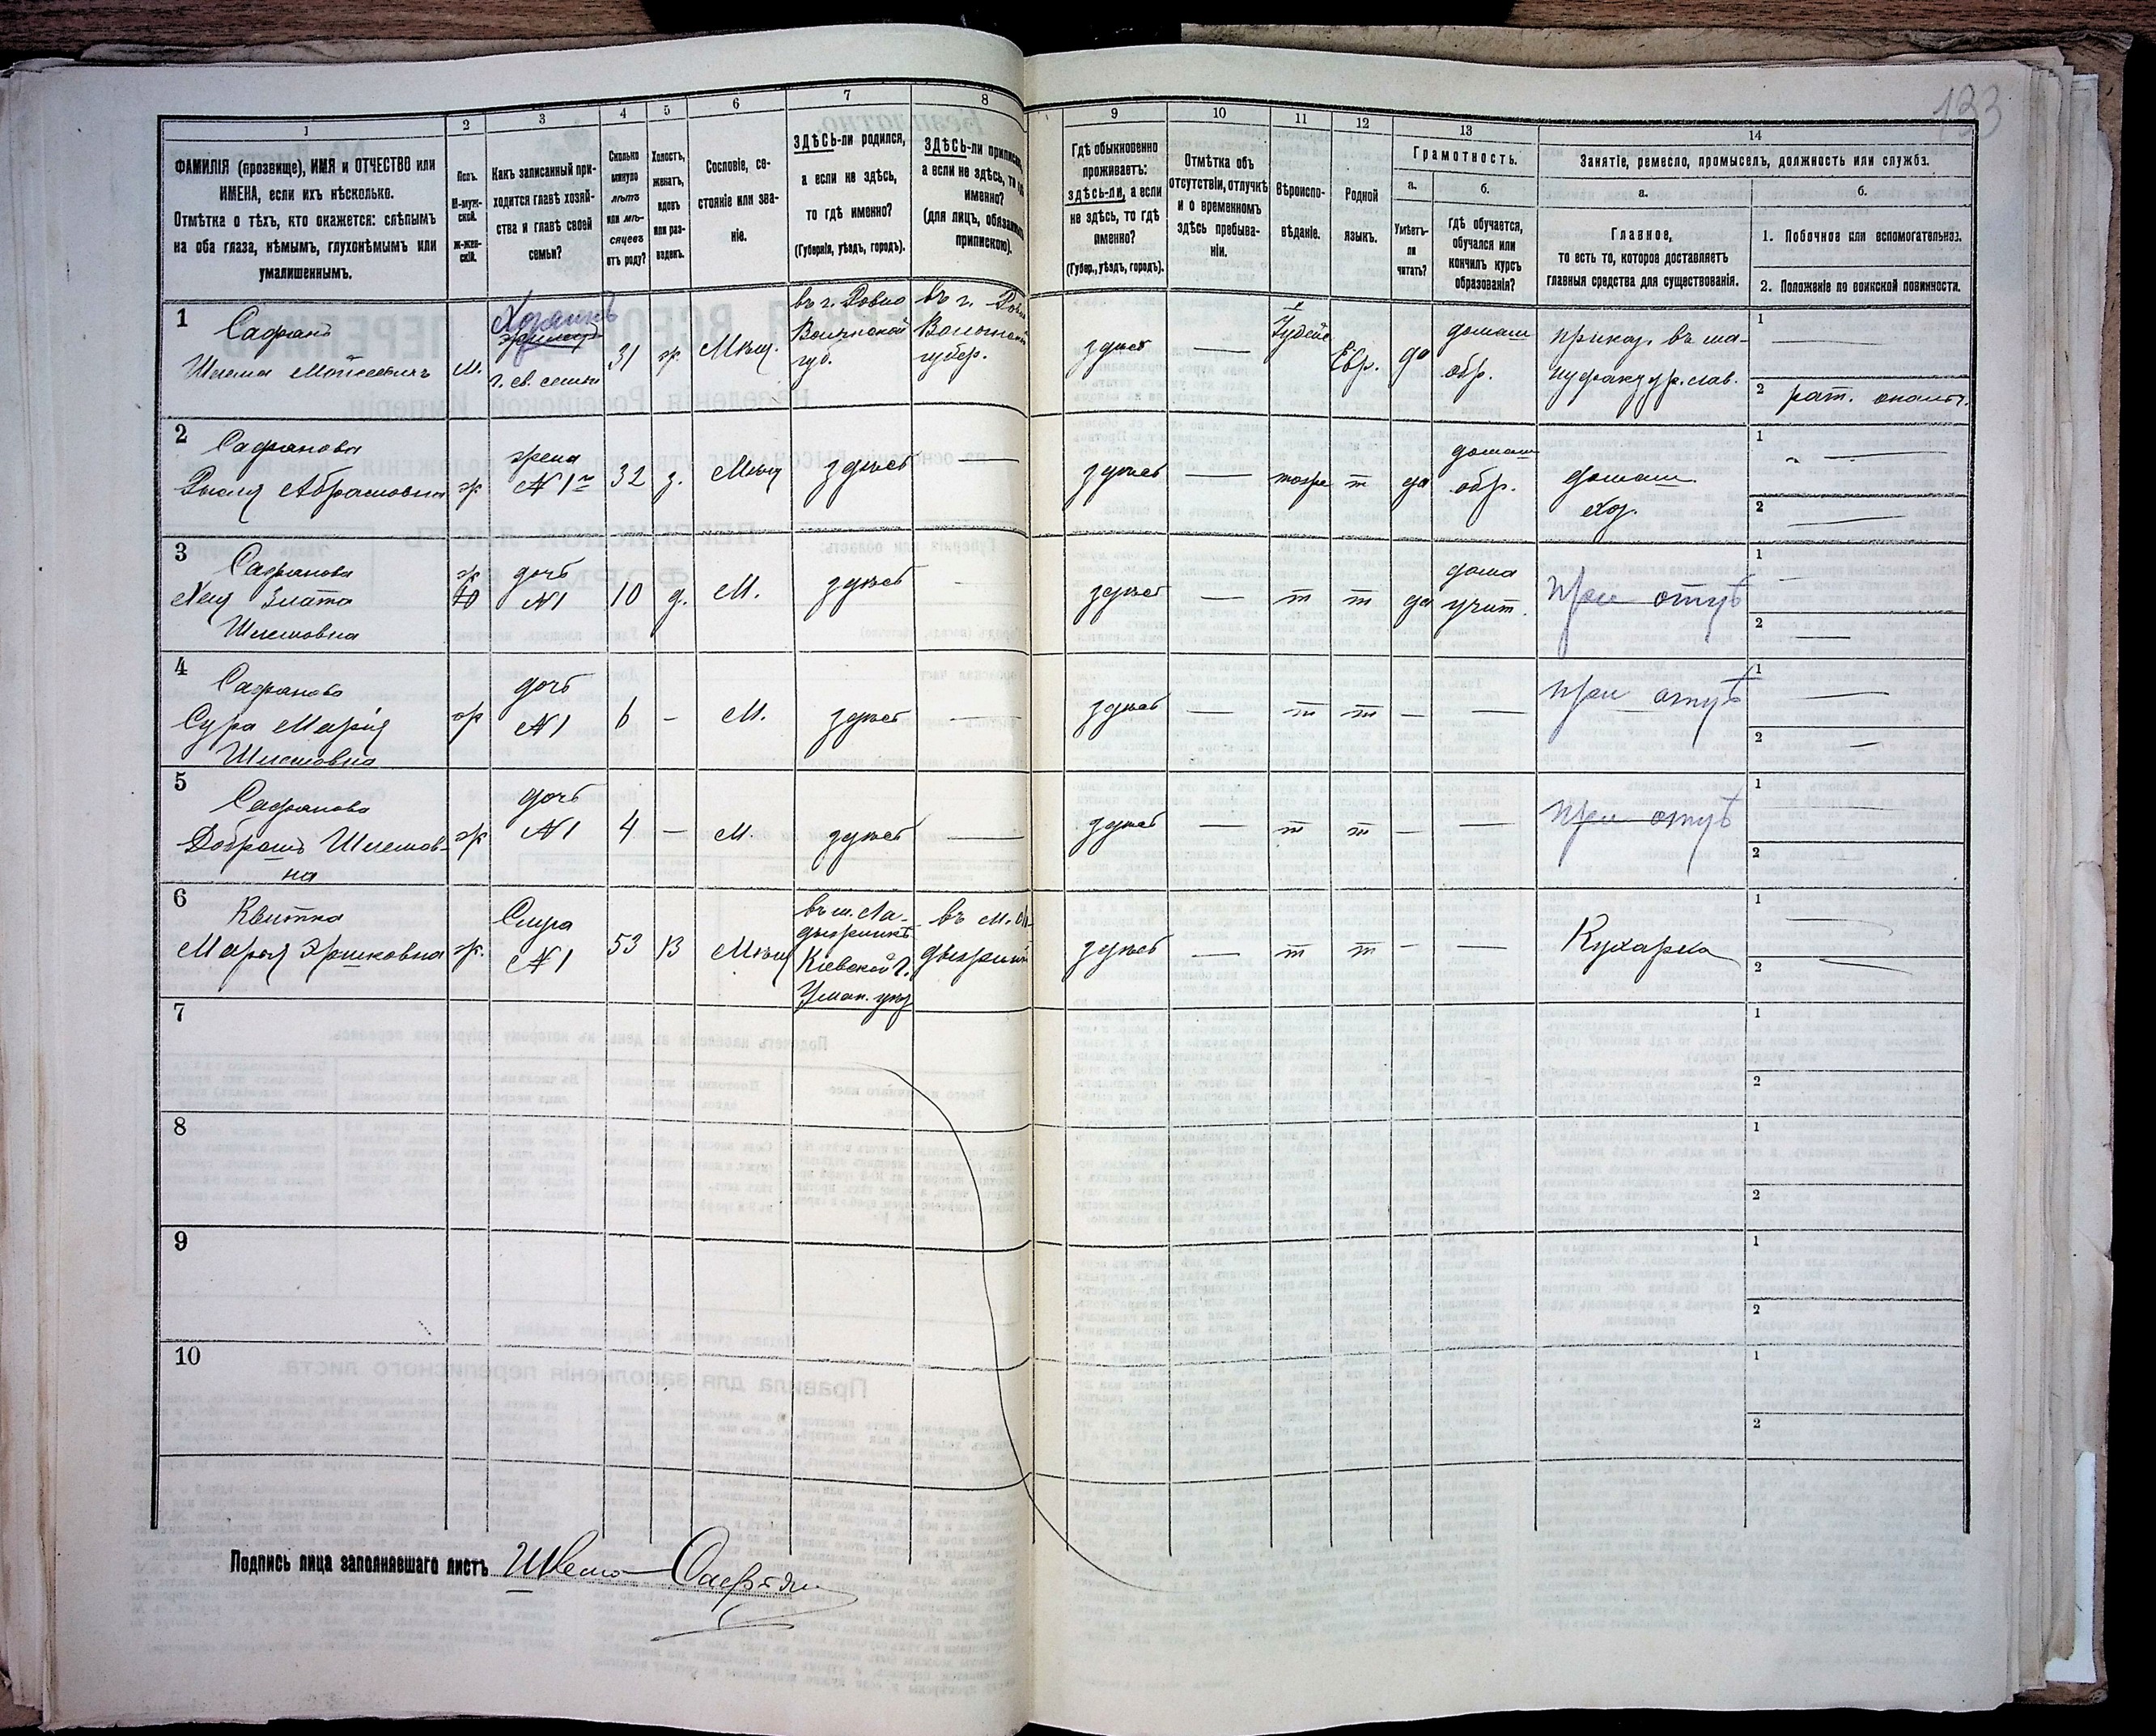 133
1
2
3
4
5
6
7
8
9
10
11
12
13
14
ФАМИЛІЯ (прозвище), ИМЯ и ОТЧЕСТВО или
ИМЕНА, если ихъ нѣсколько.
Отмѣтка о тѣхъ, кто окажется: слѣпымъ
на оба глаза, нѣмымъ, глухонѣмымъ или
умалишеннымъ.
Полъ.
М-муж-
ской.
Ж-жен-
скій.
Какъ записанный при-
ходится главѣ хозяй-
ства и главѣ своей
семьи?
Сколько
минуло
лѣтъ
или мѣ-
сяцевъ
отъ роду?
Холостъ,
женатъ,
вдовъ
или раз-
веденъ.
Сословіе, со-
стояніе или зва-
ніе.
ЗДѢСЬ-ли родился,
а если не здѣсь,
то гдѣ именно?
(Губернія, уѣздъ, городъ).
ЗДѢСЬ-ли приписанъ,
а если не здѣсь, то гдѣ
именно?
(для лицъ, обязанныхъ
припискою).
Гдѣ обыкновенно
проживаетъ:
здѣсь-ли, а если
не здѣсь, то гдѣ
именно?
(Губер., уѣздъ, городъ).
Отмѣтка объ
отсутствіи, отлучкѣ
и о временномъ
здѣсь пребыва-
ніи.
Вѣроиспо-
вѣданіе.
Родной
языкъ.
Грамотность.
а.
Умѣетъ-
ли
читать?
б.
Гдѣ обучается,
обучался или
кончилъ курсъ
образованія?
Занятіе, ремесло, промыселъ, должность или служба.
а.
Главное,
то есть то, которое доставляетъ
главныя средства для существованія.
б.
1. Побочное или вспомогательное.
2. Положеніе по воинской повинности.
1
Сафранъ
Шлема Мойсеевичъ
М.
Хозяинъ
г. св. семьи
31
ж.
Мѣщ.
въ г. Ровно
Волынской
губ.
въ г. Ровно
Волынской
губер.
здѣсь
—
Іудейс
Евр.
да
домаш
обр.
приказ. въ ма-
нуфактур. лав.
1 —
2 рат. ополч.
2
Сафранова
Абрамовна
ж
жена
№ 1
32
з.
Мѣщ
здѣсь
—
здѣсь
—
тоже
т
да
домаш
обр.
домаш.
хоз.
1 —
2 —
3
Сафранова
Хая Злата
Шлемовна
ж
дочь
№ 1
10
д.
М.
здѣсь
—
здѣсь
—
т
т
да
дома
учит.
при отцѣ
1 —
2 —
4
Сафранова
Сура Марія
Шлемовна
ж
дочь
№ 1
6
—
М.
здѣсь
—
здѣсь
—
т
т
—
—
при отцѣ
1 —
2 —
5
Сафранова
Добрашъ Шлемов-
на
ж
дочь
№ 1
4
—
М.
здѣсь
—
здѣсь
—
т
т
—
—
при отцѣ
1 —
2 —
6
Квитка
Марья Ершковна
ж.
№ 1
53
В
Мѣщ
въ м. Ла-
дыжинкѣ
Кіевской г.
Уман. уѣз
въ м. Ла-
дыжинкѣ
здѣсь
—
т
т
—
—
Кухарка
1 —
2 —
7
1
2
8
1
2
9
1
2
10
1
2
Подпись лица заполнявшаго листъ Шлема Сафранъ